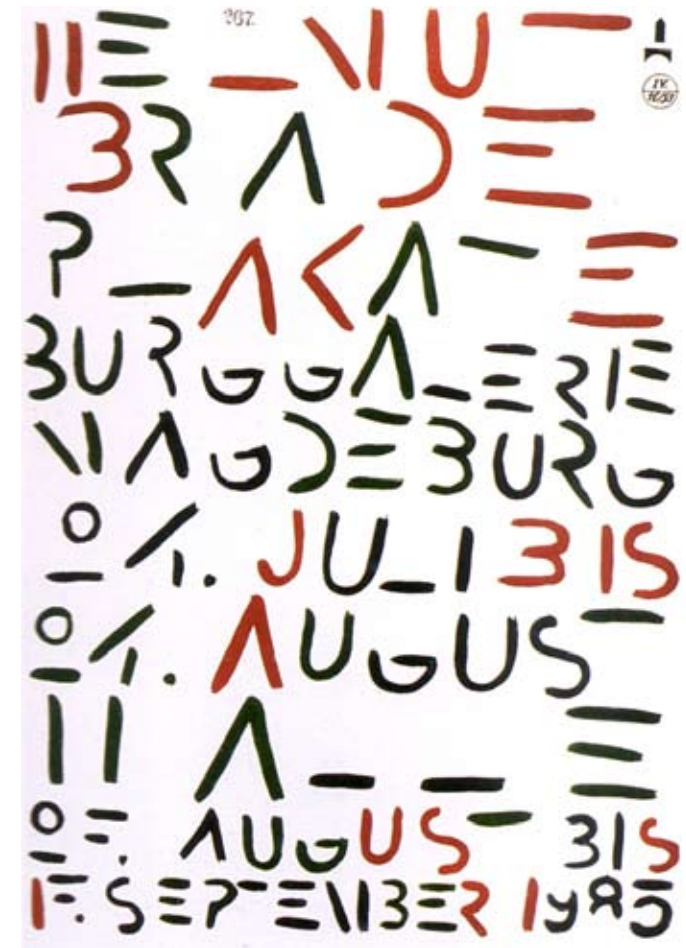 HELMUT
BRADE
PLAKATE
BURGGALERIE
MAGDEBURG
04. JULI BIS
04. AUGUST
HALLE
AUGUST BIS
SEPTEMBER 1985